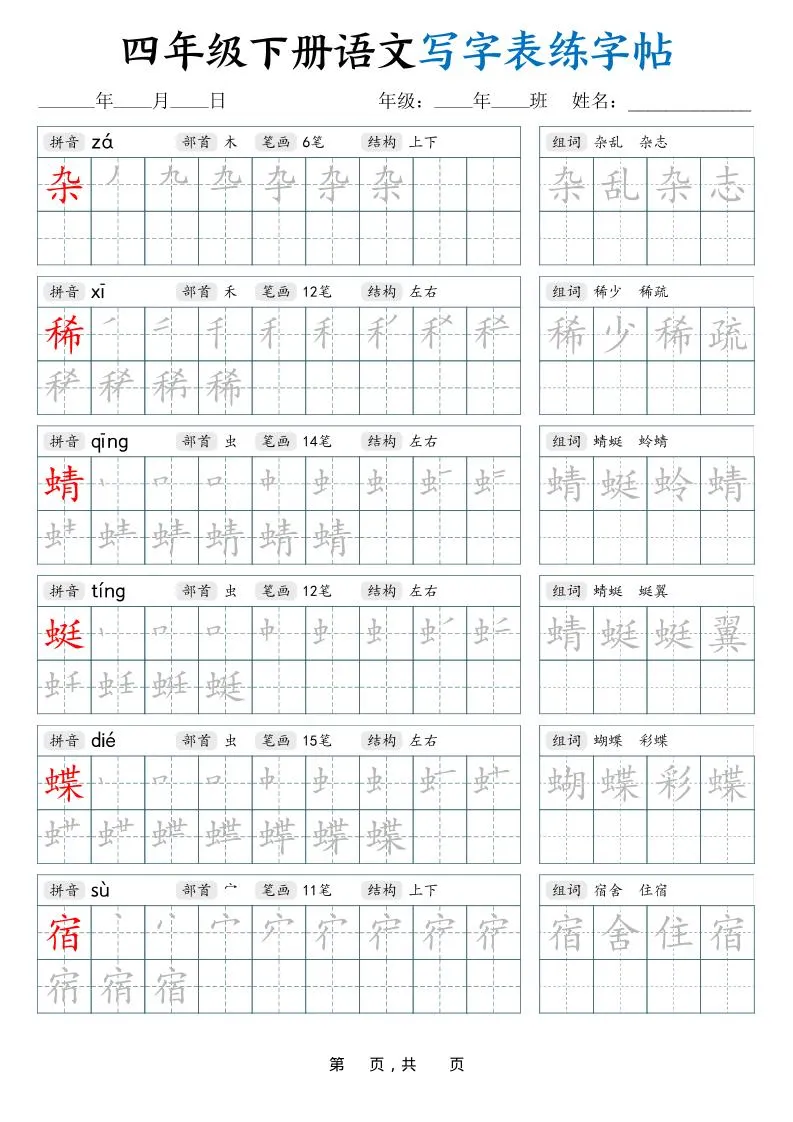 四年级下册语文写字表练字帖
年 月 日 年级： 年 班 姓名：
拼音 zá 部首 木 笔画 6笔 结构 上下 组词 杂乱 杂志
杂 杂 杂 乱 杂 志
拼音 xī 部首 禾 笔画 12笔 结构 左右 组词 稀少 稀疏
稀 稀 少 稀 疏
稀
拼音 qīng 部首 虫 笔画 14笔 结构 左右 组词 蜻蜓 蛉蜻
蜻 蜻 蜓 蛉 蜻
蜻
拼音 tíng 部首 虫 笔画 12笔 结构 左右 组词 蜻蜓 蜓翼
蜓 蜻 蜓 蜓 翼
蜓
拼音 dié 部首 虫 笔画 15笔 结构 左右 组词 蝴蝶 彩蝶
蝶 蝴 蝶 彩 蝶
蝶
拼音 sù 部首 宀 笔画 11笔 结构 上下 组词 宿舍 住宿
宿 宿 舍 住 宿
宿
第 页，共 页